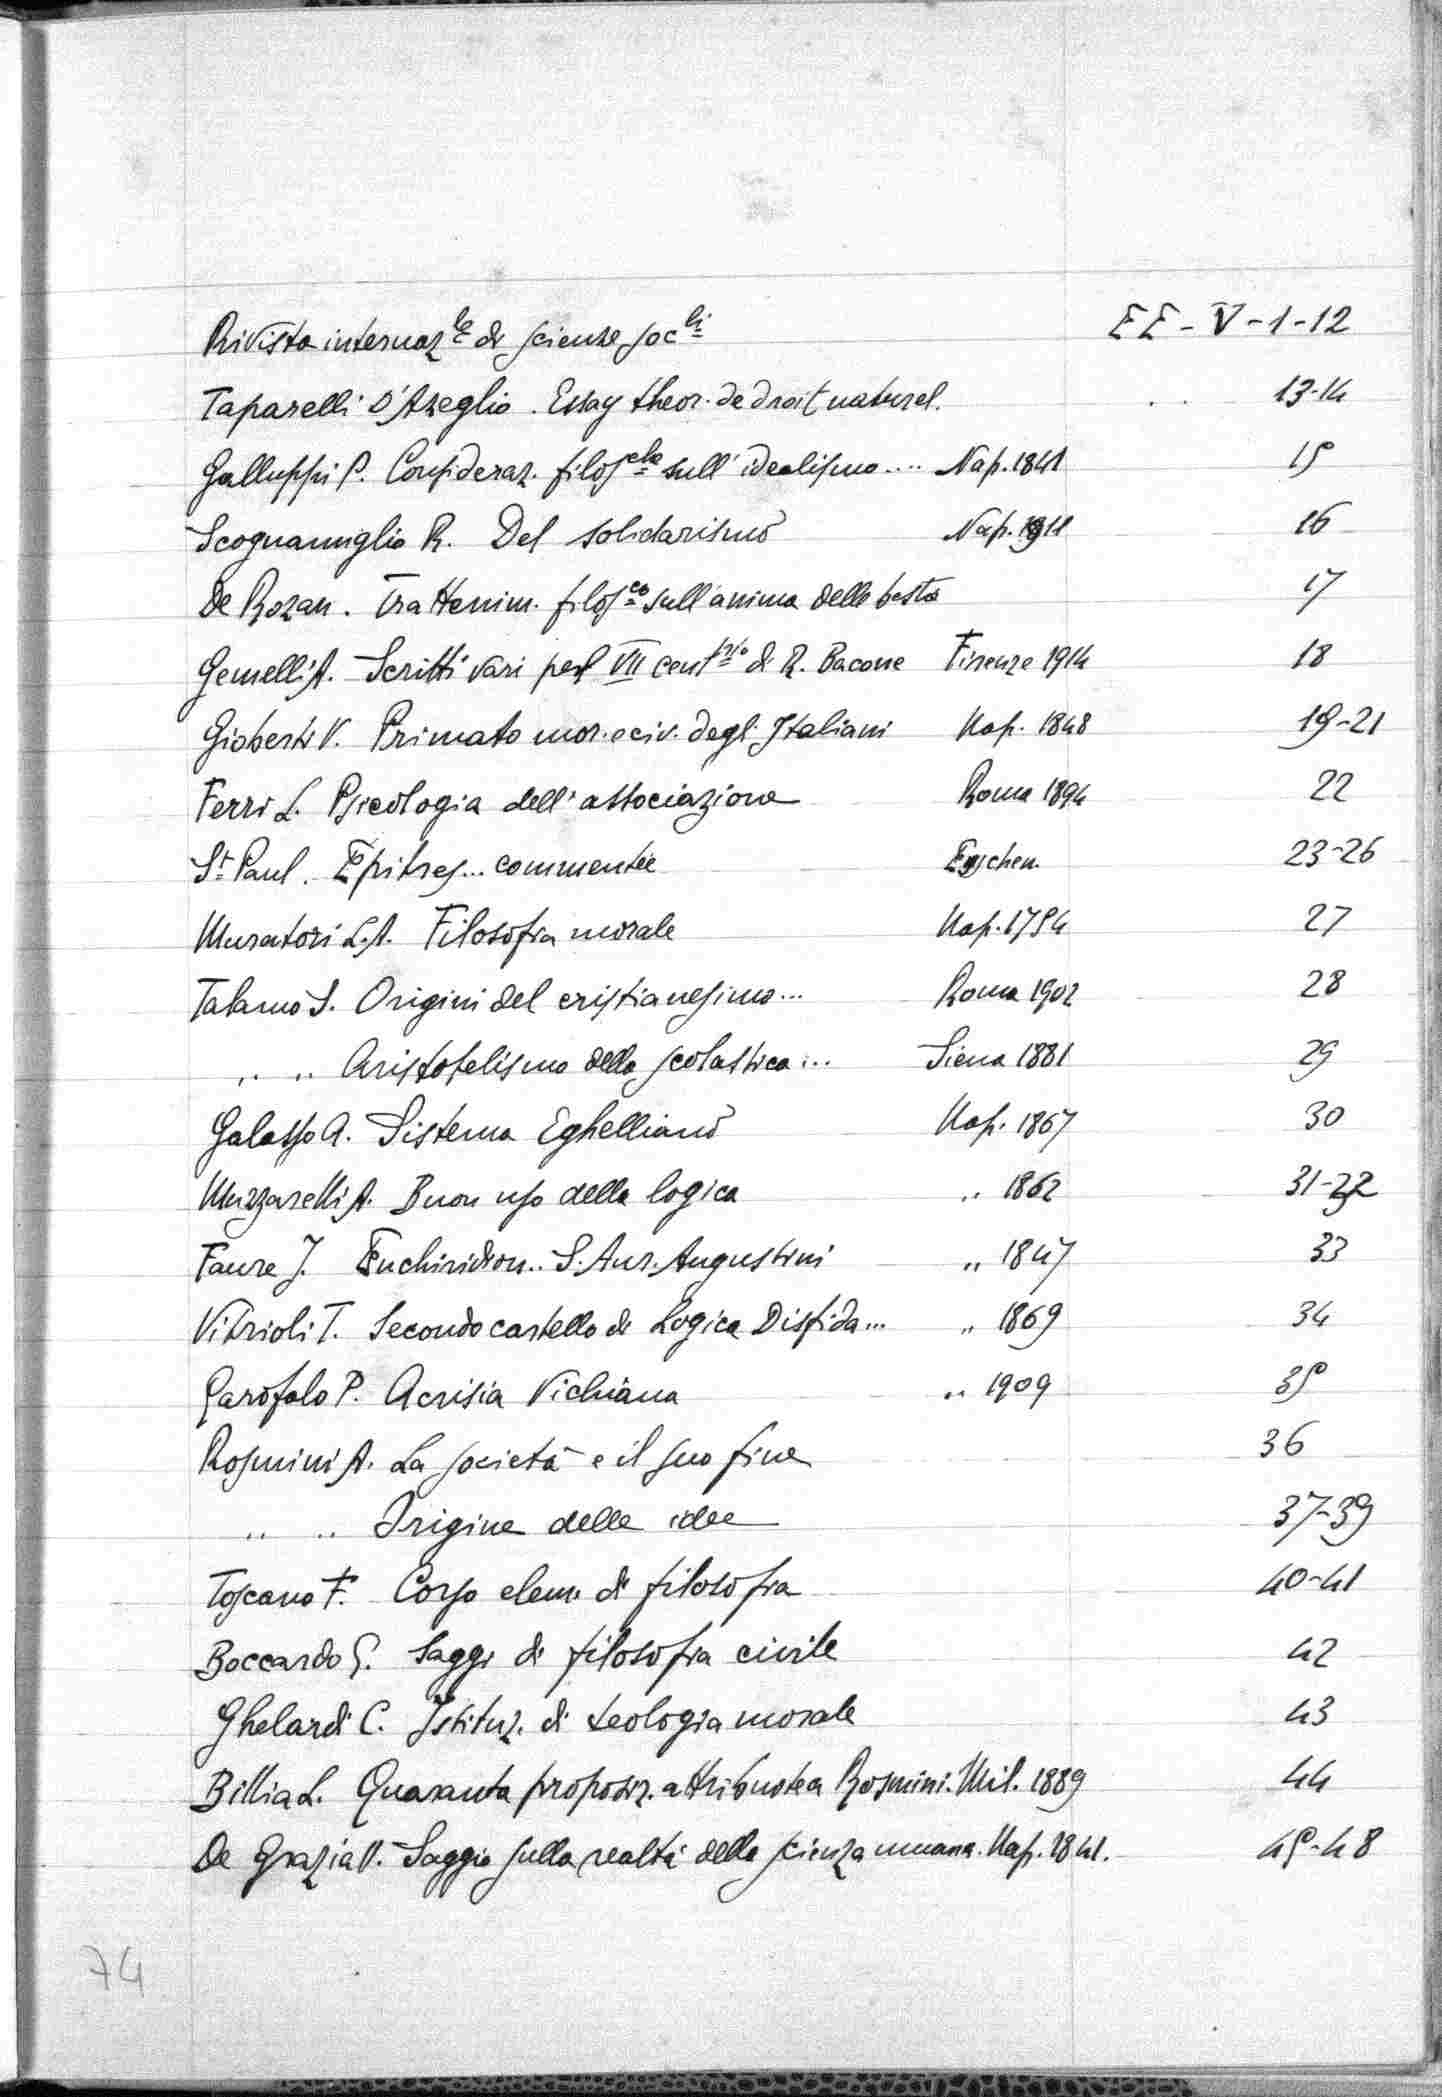 Rivista internaz.le di scienze soc.li EE-V-1-12
Taparelli D'Azeglio. Essay theor. de droit naturel. 13-14
Galluppi P. Consideraz. filosche sull'idealismo.... Nap. 1841 15
Scognamiglio R. Del solidarismo Nap. 1911 16
De Rozan. Trattenim. filosco sull'anima delle bestie 17
Gemelli A. Scritti vari pel VII centrio di R. Bacone Firenze 1914 18
Gioberti V. Primato mor. e civ. degli Italiani Nap. 1848 19-21
Ferri L. Psicologia dell'associazione Roma 1894 22
St Paul. Epitres... commentée 23-26
Muratori L.A. Filosofia morale Nap. 1754 27
Talamo S. Origini del cristianesimo... Roma 1902 28
" " Aristotelismo della scolastica... Siena 1881 29
Galasso A. Sistema Eghelliano Nap. 1867 30
Muzzarelli A. Buon uso della logica " 1862 31-32
Faure J. Enchiridion.. S. Aur. Augustini " 1847 33
Vitrioli T. Secondo cartello di Logica Disfida... " 1869 34
Garofalo P. Acrisia Vichiana " 1909 35
Rosmini A. La società e il suo fine 36
" " Origine delle idee 37-39
Toscano F. Corso elem. di filosofia 40-41
Boccardo G. Saggi di filosofia civile 42
Ghelardi C. Istituz. di teologia morale 43
Billia L. Quaranta proposiz. attribuite a Rosmini. Mil. 1889 44
De Grazia V. Saggio sulla realtà della scienza umana. Nap. 1841. 45-48
74